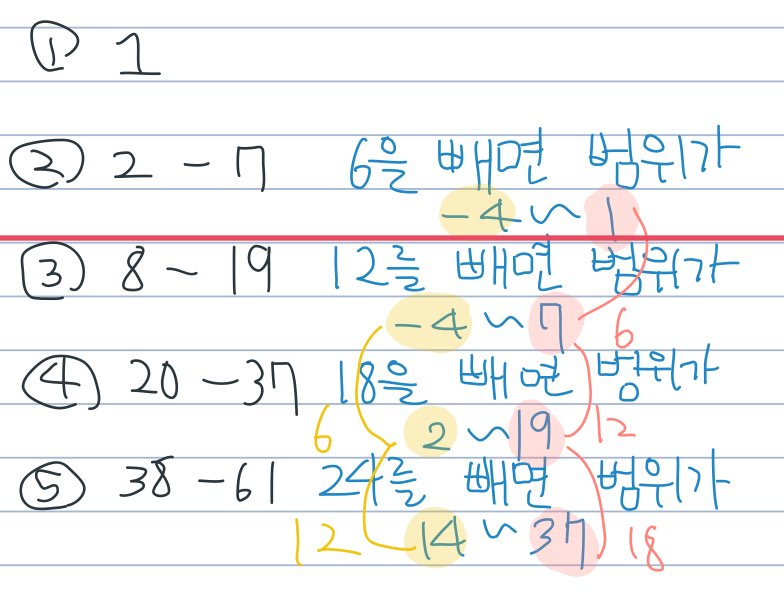 ① 1
② 2 - 7 6을 빼면 범위가
-4 ~ 1
③ 8 ~ 19 12를 빼면 범위가
-4 ~ 7 6
④ 20 - 37 18을 빼면 범위가
6 2 ~ 19 12
⑤ 38 - 61 24를 빼면 범위가
12 14 ~ 37 18